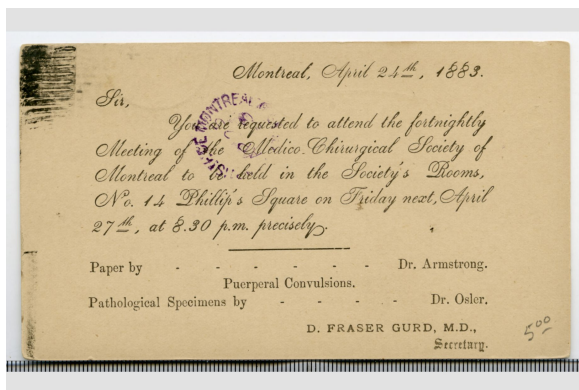 Montreal, April 24th, 1883.
Sir,
You are requested to attend the fortnightly
Meeting of the Medico-Chirurgical Society of
Montreal to be held in the Society's Rooms,
No. 14 Phillip's Square on Friday next, April
27th, at 8.30 p.m. precisely.
Paper by - - - - - - Dr. Armstrong.
Puerperal Convulsions.
Pathological Specimens by - - - - Dr. Osler.
D. FRASER GURD, M.D.,
Secretary.
5.00
MONTREAL